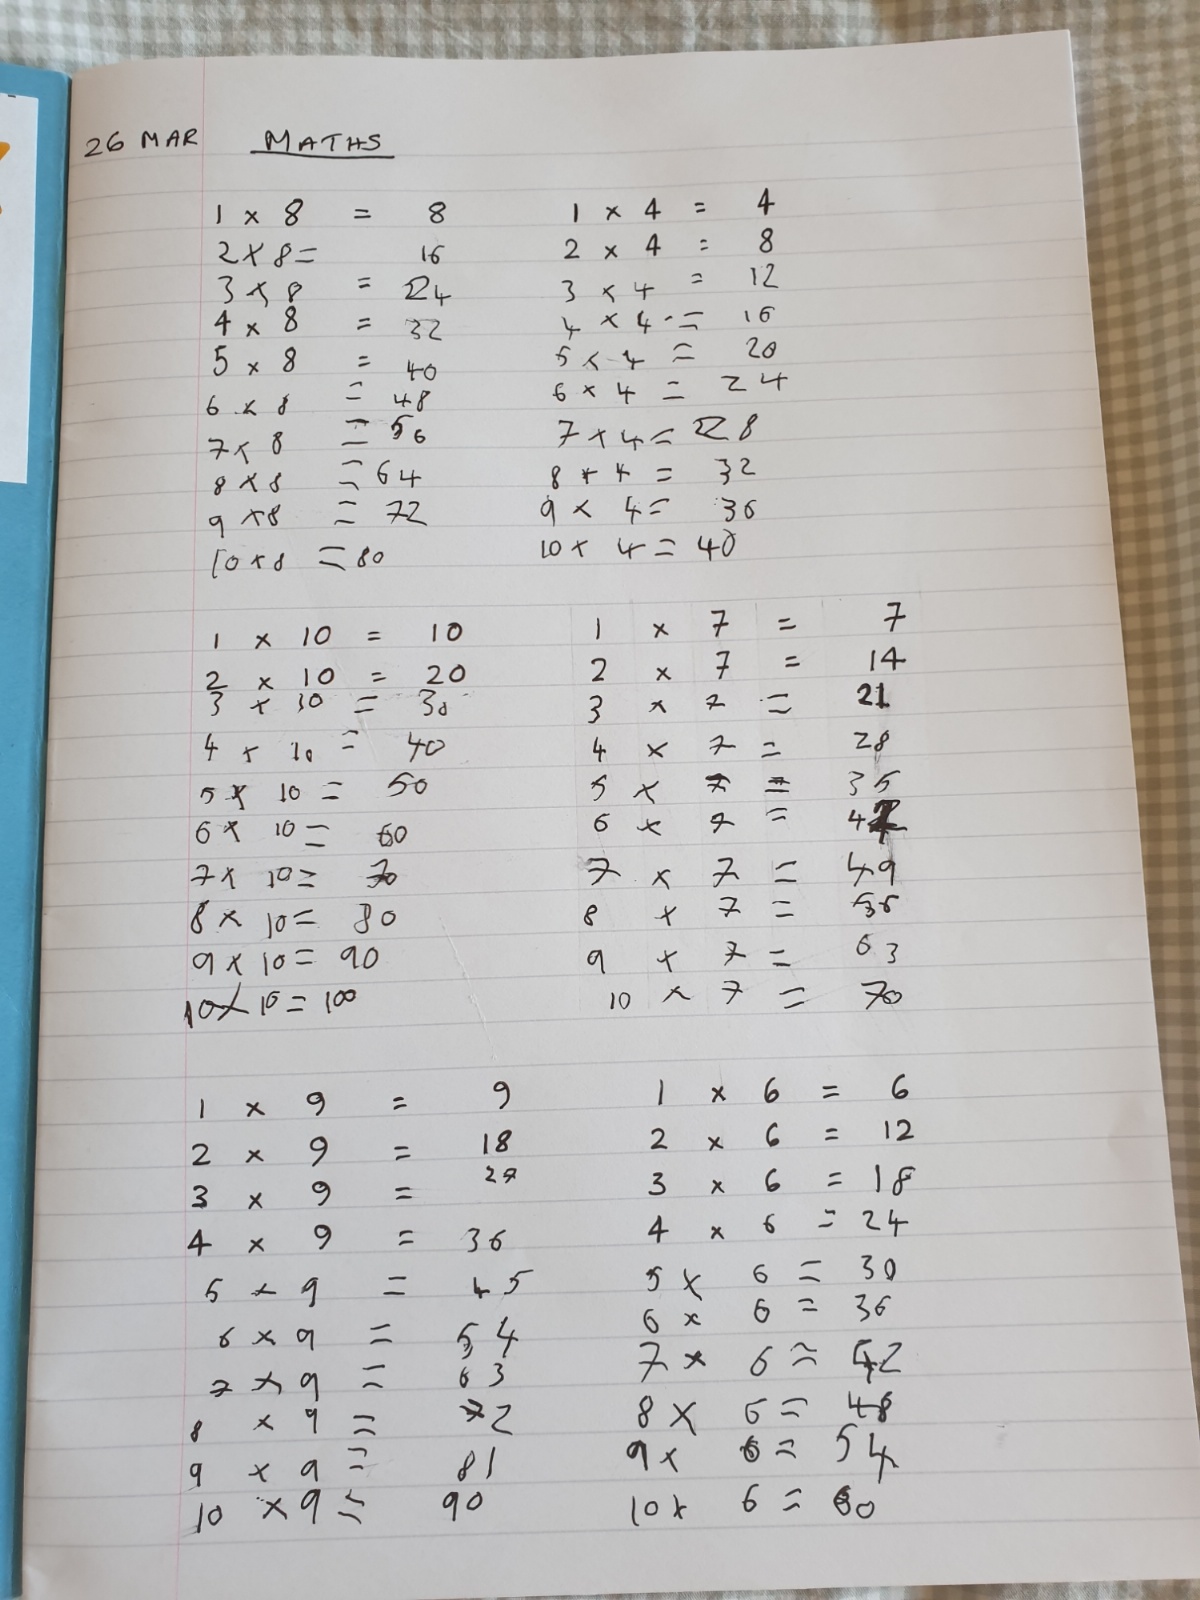 26 MAR MATHS
1 x 8 = 8
2 x 8 = 16
3 x 8 = 24
4 x 8 = 32
5 x 8 = 40
6 x 8 = 48
7 x 8 = 56
8 x 8 = 64
9 x 8 = 72
10 x 8 = 80
1 x 4 = 4
2 x 4 = 8
3 x 4 = 12
4 x 4 = 16
5 x 4 = 20
6 x 4 = 24
7 x 4 = 28
8 x 4 = 32
9 x 4 = 36
10 x 4 = 40
1 x 10 = 10
2 x 10 = 20
3 x 10 = 30
4 x 10 = 40
5 x 10 = 50
6 x 10 = 60
7 x 10 = 70
8 x 10 = 80
9 x 10 = 90
10 x 10 = 100
1 x 7 = 7
2 x 7 = 14
3 x 7 = 21
4 x 7 = 28
5 x 7 = 35
6 x 7 = 42
7 x 7 = 49
8 x 7 = 56
9 x 7 = 63
10 x 7 = 70
1 x 9 = 9
2 x 9 = 18
3 x 9 = 27
4 x 9 = 36
5 x 9 = 45
6 x 9 = 54
7 x 9 = 63
8 x 9 = 72
9 x 9 = 81
10 x 9 = 90
1 x 6 = 6
2 x 6 = 12
3 x 6 = 18
4 x 6 = 24
5 x 6 = 30
6 x 6 = 36
7 x 6 = 42
8 x 6 = 48
9 x 6 = 54
10 x 6 = 60